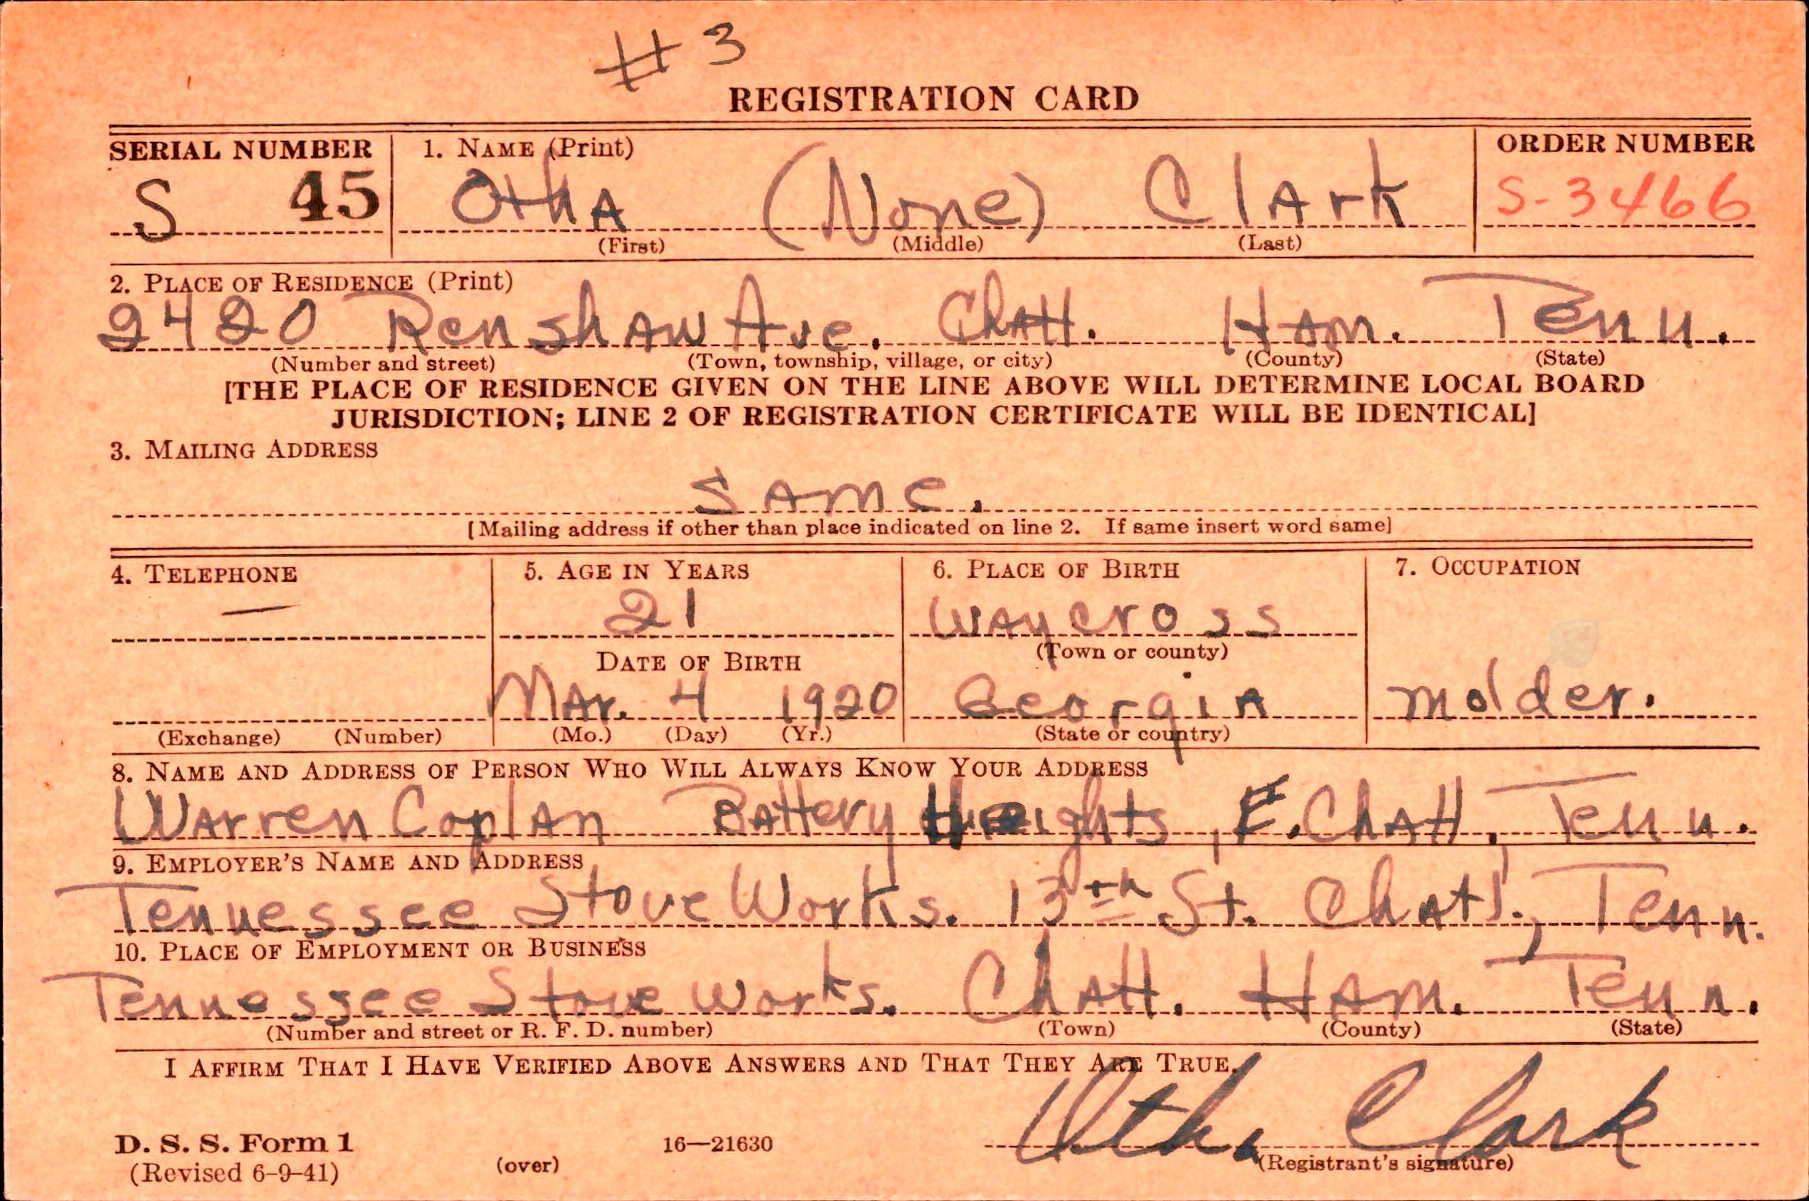 # 3
REGISTRATION CARD
SERIAL NUMBER 1. NAME (Print) ORDER NUMBER
S 45 Otha (None) Clark S-3466
(First) (Middle) (Last)
2. PLACE OF RESIDENCE (Print)
2420 Renshaw Ave. Chatt. Ham. Tenn.
(Number and street) (Town, township, village, or city) (County) (State)
[THE PLACE OF RESIDENCE GIVEN ON THE LINE ABOVE WILL DETERMINE LOCAL BOARD
JURISDICTION; LINE 2 OF REGISTRATION CERTIFICATE WILL BE IDENTICAL]
3. MAILING ADDRESS
Same.
[Mailing address if other than place indicated on line 2. If same insert word same]
4. TELEPHONE 5. AGE IN YEARS 6. PLACE OF BIRTH 7. OCCUPATION
— 21 Waycross
DATE OF BIRTH (Town or county)
Mar. 4 1920 Georgia Molder.
(Exchange) (Number) (Mo.) (Day) (Yr.) (State or country)
8. NAME AND ADDRESS OF PERSON WHO WILL ALWAYS KNOW YOUR ADDRESS
Warren Coplan Battery Heights, E. Chatt, Tenn.
9. EMPLOYER'S NAME AND ADDRESS
Tennessee Stove Works. 13th St. Chatt., Tenn.
10. PLACE OF EMPLOYMENT OR BUSINESS
Tennessee Stove Works. Chatt. Ham. Tenn.
(Number and street or R. F. D. number) (Town) (County) (State)
I AFFIRM THAT I HAVE VERIFIED ABOVE ANSWERS AND THAT THEY ARE TRUE.
Otha Clark
D. S. S. Form 1 16—21630
(Revised 6-9-41) (over) (Registrant's signature)